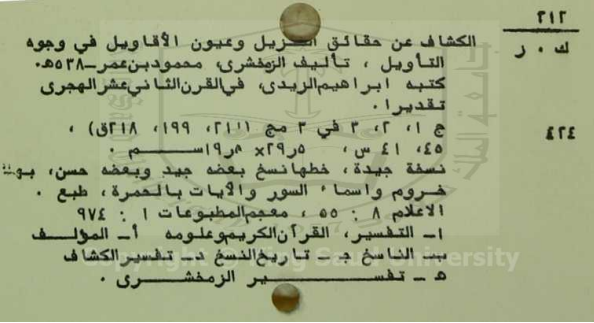 ٢١٢
ك ٠ ر
الكشاف عن حقائق التنزيل وعيون الأقاويل في وجوه
التأويل ، تأليف الزمخشرى، محمودبن عمر-٥٣٨ه٠
كتبه ابراهيم الريدى، في القرن الثاني عشر الهجرى
تقديرا ٠
٤٢٤
ج ١، ٢، ٣ في ٣ مج (٢١١، ١٩٩، ٢١٨ق) ،
٤٥، ٤١ س، ٢٩٫٥×١٩٫٨ســـم ٠
نسخة جيدة، خطها نسخ بعضه جيد وبعضه حسن، بها
خروم واسماء السور والآيات بالحمرة، طبع ٠
الاعلام ٨ : ٥٥ ، معجم المطبوعات ١ : ٩٧٤
١- التفسير، القرآن الكريم وعلومه أ- المؤلـــف
ب- الناسخ ج- تاريخ النسخ د- تفسير الكشاف
ه - تفســـــير الزمخشـــرى ٠
Copyright © King Saud University